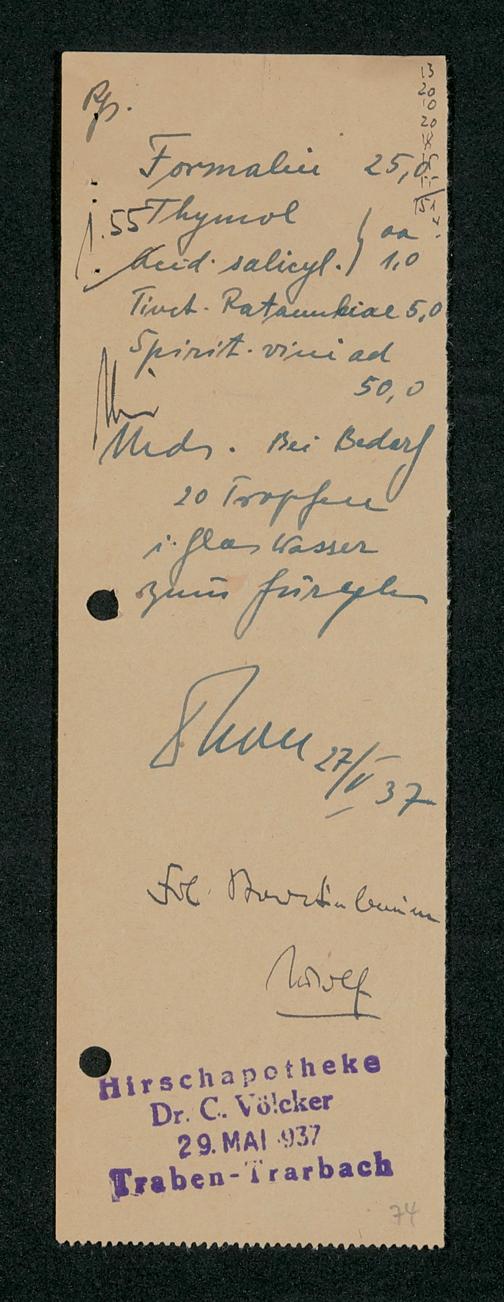 Rp.
13
20
10
20
Formalin 25,0
1.55
Thymol
Acid. salicyl. } aa 1,0
Tinct. Ratanhiae 5,0
Spirit. vini ad
50,0
Mds. Bei Bedarf
20 Tropfen
i. Glas Wasser
zum Gurgeln
27/V 37
Frl.
Wolf
Hirschapotheke
Dr. C. Völcker
29. MAI 937
Traben-Trarbach
74